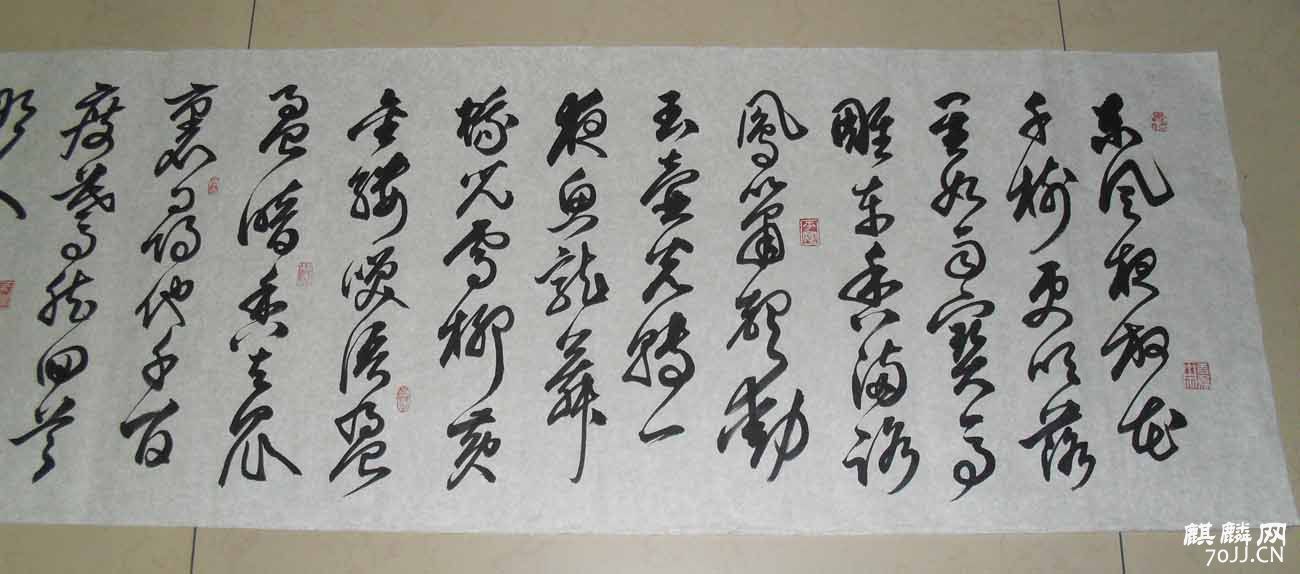 東風夜放花
千樹更吹落
星如雨寶馬
雕車香滿路
鳳簫聲動
玉壺光轉一
夜魚龍舞
蛾兒雪柳黃
金縷笑語盈
盈暗香去眾
裏尋他千百
度驀然回首
那人
麒麟网
70JJ.CN